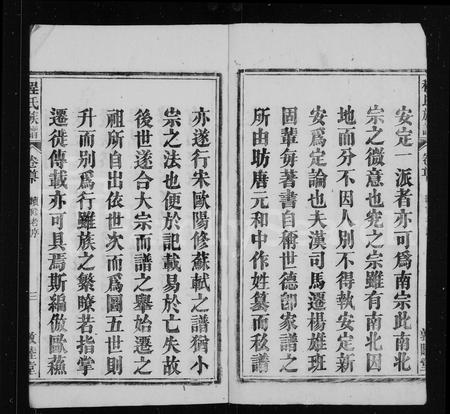 安定一派者亦可為南宗此南北
宗之微意也究之宗雖有南北因
地而分不因人別不得執安定新
安為定論也夫漢司馬遷楊雄班
固輩每著書自衒世德即家譜之
所由昉唐元和中作姓纂而秘譜
亦遂行宋歐陽修蘇軾之譜猶小
宗之法也便於記載易於亡失故
後世遂合大宗而譜之舉始遷之
祖所自出依世次而為圖五世則
升而別為行雖族之繁瞭若指掌
遷徙傳載亦可具焉斯編倣歐蘇
程氏族譜
卷首
三
敦睦堂